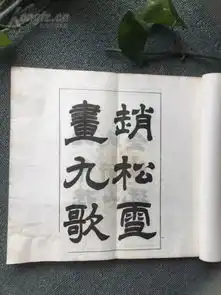 趙松雪
畫九歌